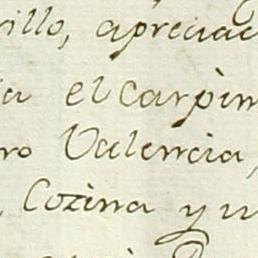 illo, apreciac
ia el carpin
ro Valencia,
, Cozina y u